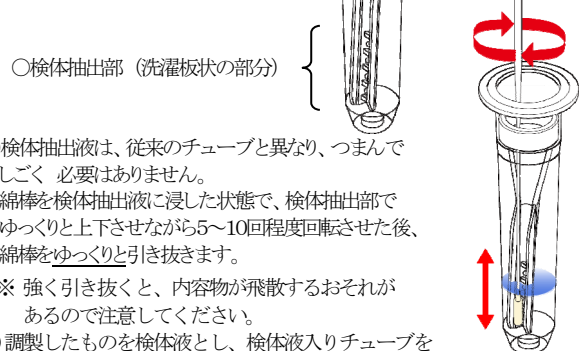 ○検体抽出部（洗濯板状の部分）
検体抽出液は、従来のチューブと異なり、つまんで
しごく 必要はありません。
綿棒を検体抽出液に浸した状態で、検体抽出部で
ゆっくりと上下させながら5～10回程度回転させた後、
綿棒をゆっくりと引き抜きます。
※ 強く引き抜くと、内容物が飛散するおそれが
あるので注意してください。
)調製したものを検体液とし、検体液入りチューブを